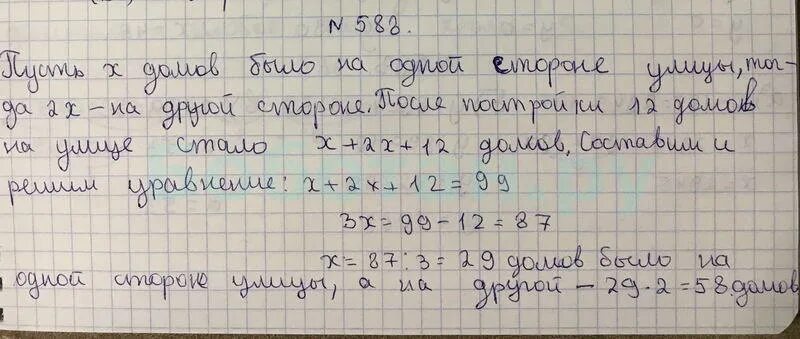 № 583.
Пусть x домов было на одной стороне улицы, тог-
да 2x – на другой стороне. После постройки 12 домов
на улице стало x + 2x + 12 домов. Составим и
решим уравнение: x + 2x + 12 = 99
3x = 99 - 12 = 87
x = 87 : 3 = 29 домов было на
одной стороне улицы, а на другой – 29 · 2 = 58 домов